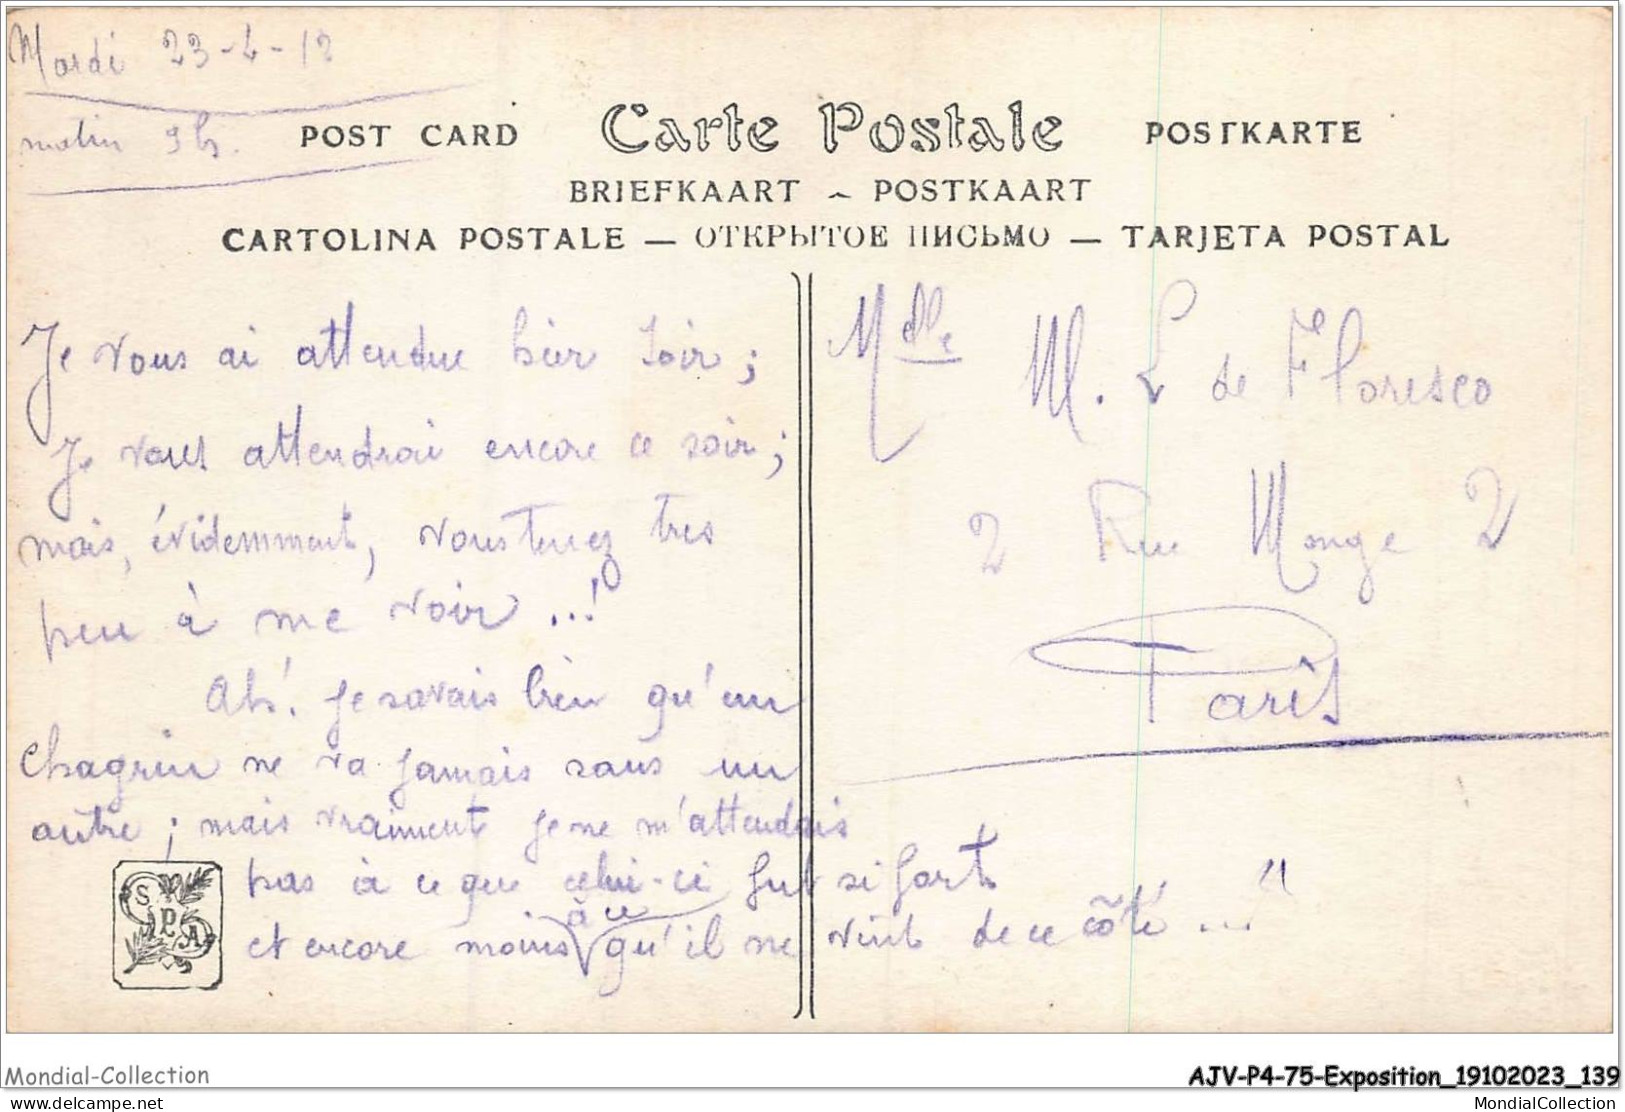 Mardi 23-4-12
matin 9h.
POST CARD Carte Postale POSTKARTE
BRIEFKAART - POSTKAART
CARTOLINA POSTALE — ОТКРЫТОЕ ПИСЬМО — TARJETA POSTAL
Je vous ai attendue hier soir;
Je vous attendrai encore ce soir;
mais, évidemment, vous tenez tres
peu à me voir ...!
Ah! je savais bien qu'un
chagrin ne va jamais sans un
autre; mais vraiment je ne m'attendais
pas à ce que celui-ci fut si fort
et encore moins à ce qu'il ne vint de ce côté ..."
Mdlle M. L de Floresco
2 Rue Monge 2
Paris
S P A
Mondial-Collection
AJV-P4-75-Exposition_19102023_139
delcampe.net
MondialCollection